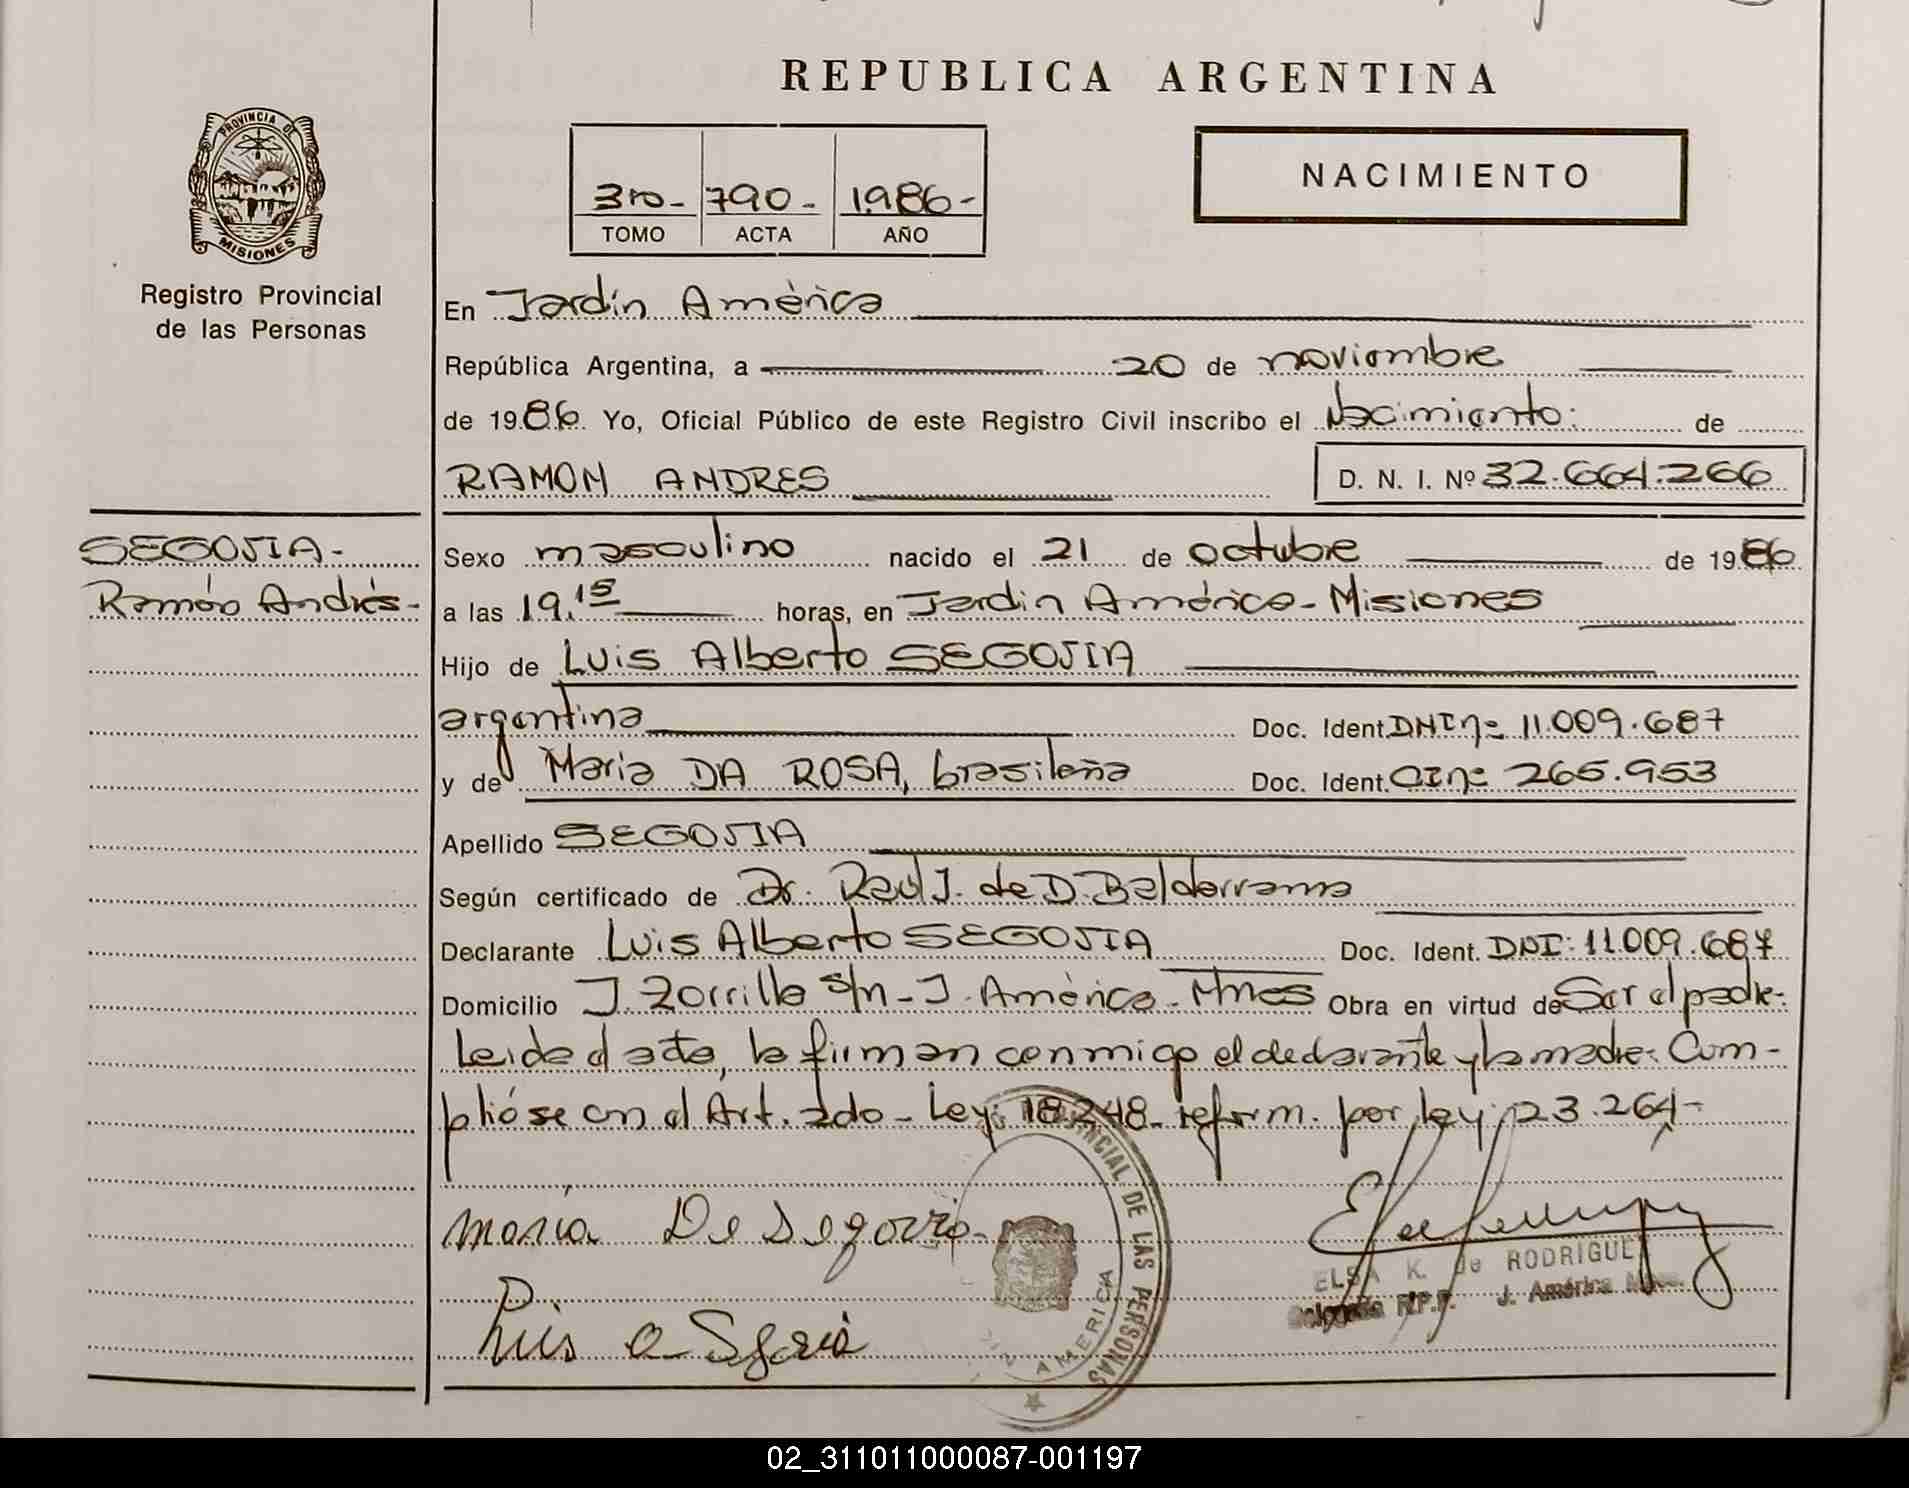 REPUBLICA ARGENTINA
PROVINCIA DE
MISIONES
Registro Provincial
de las Personas
3ro- 790- 1.986-
TOMO ACTA AÑO
NACIMIENTO
En Jardín América
República Argentina, a 20 de noviembre
de 1986 Yo, Oficial Público de este Registro Civil inscribo el Nacimiento: de
RAMON ANDRES D. N. I. Nº 32.664.266
SEGOVIA-
Ramón Andrés-
Sexo masculino nacido el 21 de octubre de 1986
a las 19,15 horas, en Jardín América - Misiones
Hijo de Luis Alberto SEGOVIA
argentina Doc. Ident. DNI nº 11.009.687
y de Maria DA ROSA, brasileña Doc. Ident. CI nº 265.953
Apellido SEGOVIA
Según certificado de Dr. Raúl J. de D. Balderrama
Declarante Luis Alberto SEGOVIA Doc. Ident. DNI: 11.009.687
Domicilio J. Zorrilla s/n - J. América - Mnes Obra en virtud de Ser el padre-
Leida el acta, la firman conmigo el declarante y la madre. Cum-
plióse con el Art. 2do - Ley: 18.248 - reform. por ley: 23.264-
PROVINCIAL DE LAS PERSONAS
AMERICA
maria De Segovia
Luis A Segovia
ELSA K. de RODRIGUE
R.P.P. J. América
02_311011000087-001197